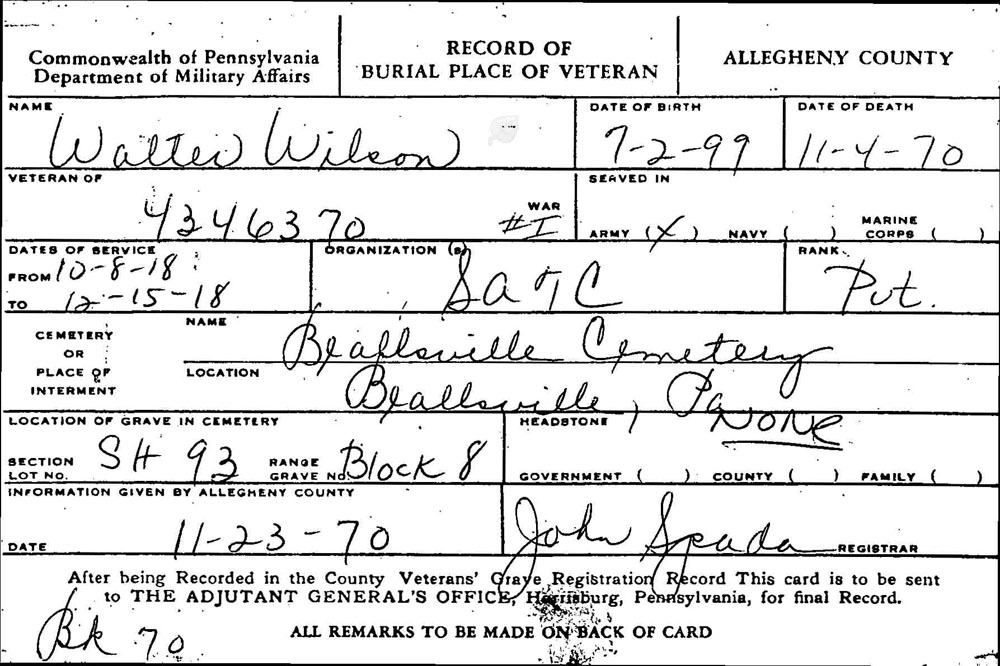 Commonwealth of Pennsylvania
Department of Military Affairs
RECORD OF
BURIAL PLACE OF VETERAN
ALLEGHENY COUNTY
NAME
Walter Wilson
DATE OF BIRTH
7-2-99
DATE OF DEATH
11-4-70
VETERAN OF
4346370
WAR
#I
SERVED IN
ARMY (X) NAVY ( ) MARINE CORPS ( )
DATES OF SERVICE
FROM 10-8-18
TO 12-15-18
ORGANIZATION (S)
SATC
RANK
Pvt.
CEMETERY
OR
PLACE OF
INTERMENT
NAME
Beallsville Cemetery
LOCATION
Beallsville, Pa
LOCATION OF GRAVE IN CEMETERY
SECTION
LOT NO.
SH 93
RANGE
GRAVE NO.
Block 8
HEADSTONE
NONE
GOVERNMENT ( ) COUNTY ( ) FAMILY ( )
INFORMATION GIVEN BY ALLEGHENY COUNTY
DATE 11-23-70
John Spada REGISTRAR
After being Recorded in the County Veterans' Grave Registration Record This card is to be sent
to THE ADJUTANT GENERAL'S OFFICE, Harrisburg, Pennsylvania, for final Record.
Bk 70
ALL REMARKS TO BE MADE ON BACK OF CARD